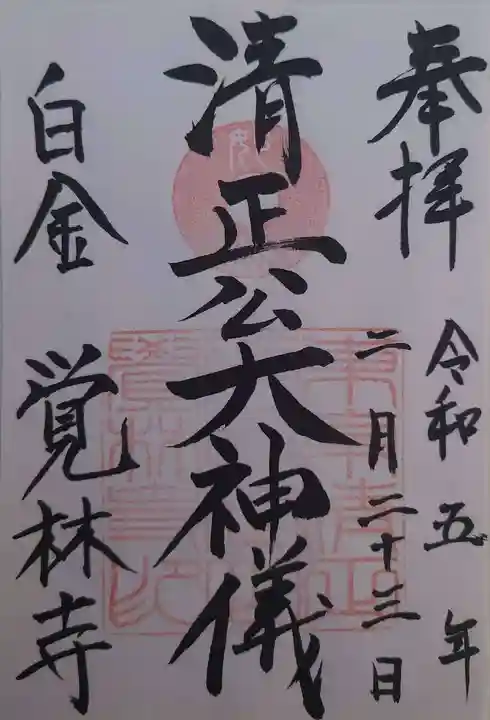 奉拝
令和五年
二月二十三日
清正公大神儀
白金 覚林寺